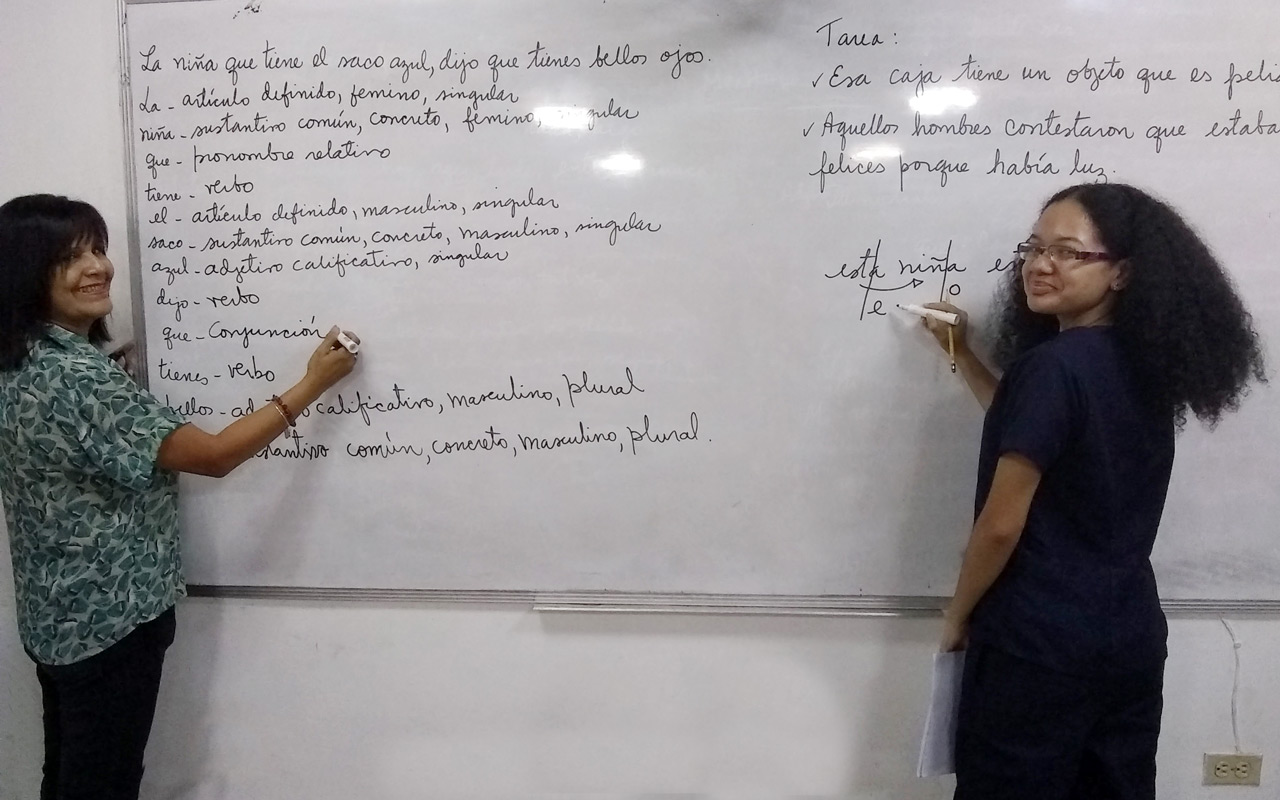 La niña que tiene el saco azul, dijo que tienes bellos ojos.
La - artículo definido, femino, singular
niña - sustantivo común, concreto, femino,
que - pronombre relativo
tiene - verbo
el - artículo definido, masculino, singular
saco - sustantivo común, concreto, masculino, singular
azul - adjetivo calificativo, singular
dijo - verbo
que - Conjunción
tienes - verbo
bellos - calificativo, masculino, plural
común, concreto, masculino, plural.
Tarea:
✓ Esa caja tiene un objeto que es
✓ Aquellos hombres contestaron que
felices porque había luz.
esta niña
e o